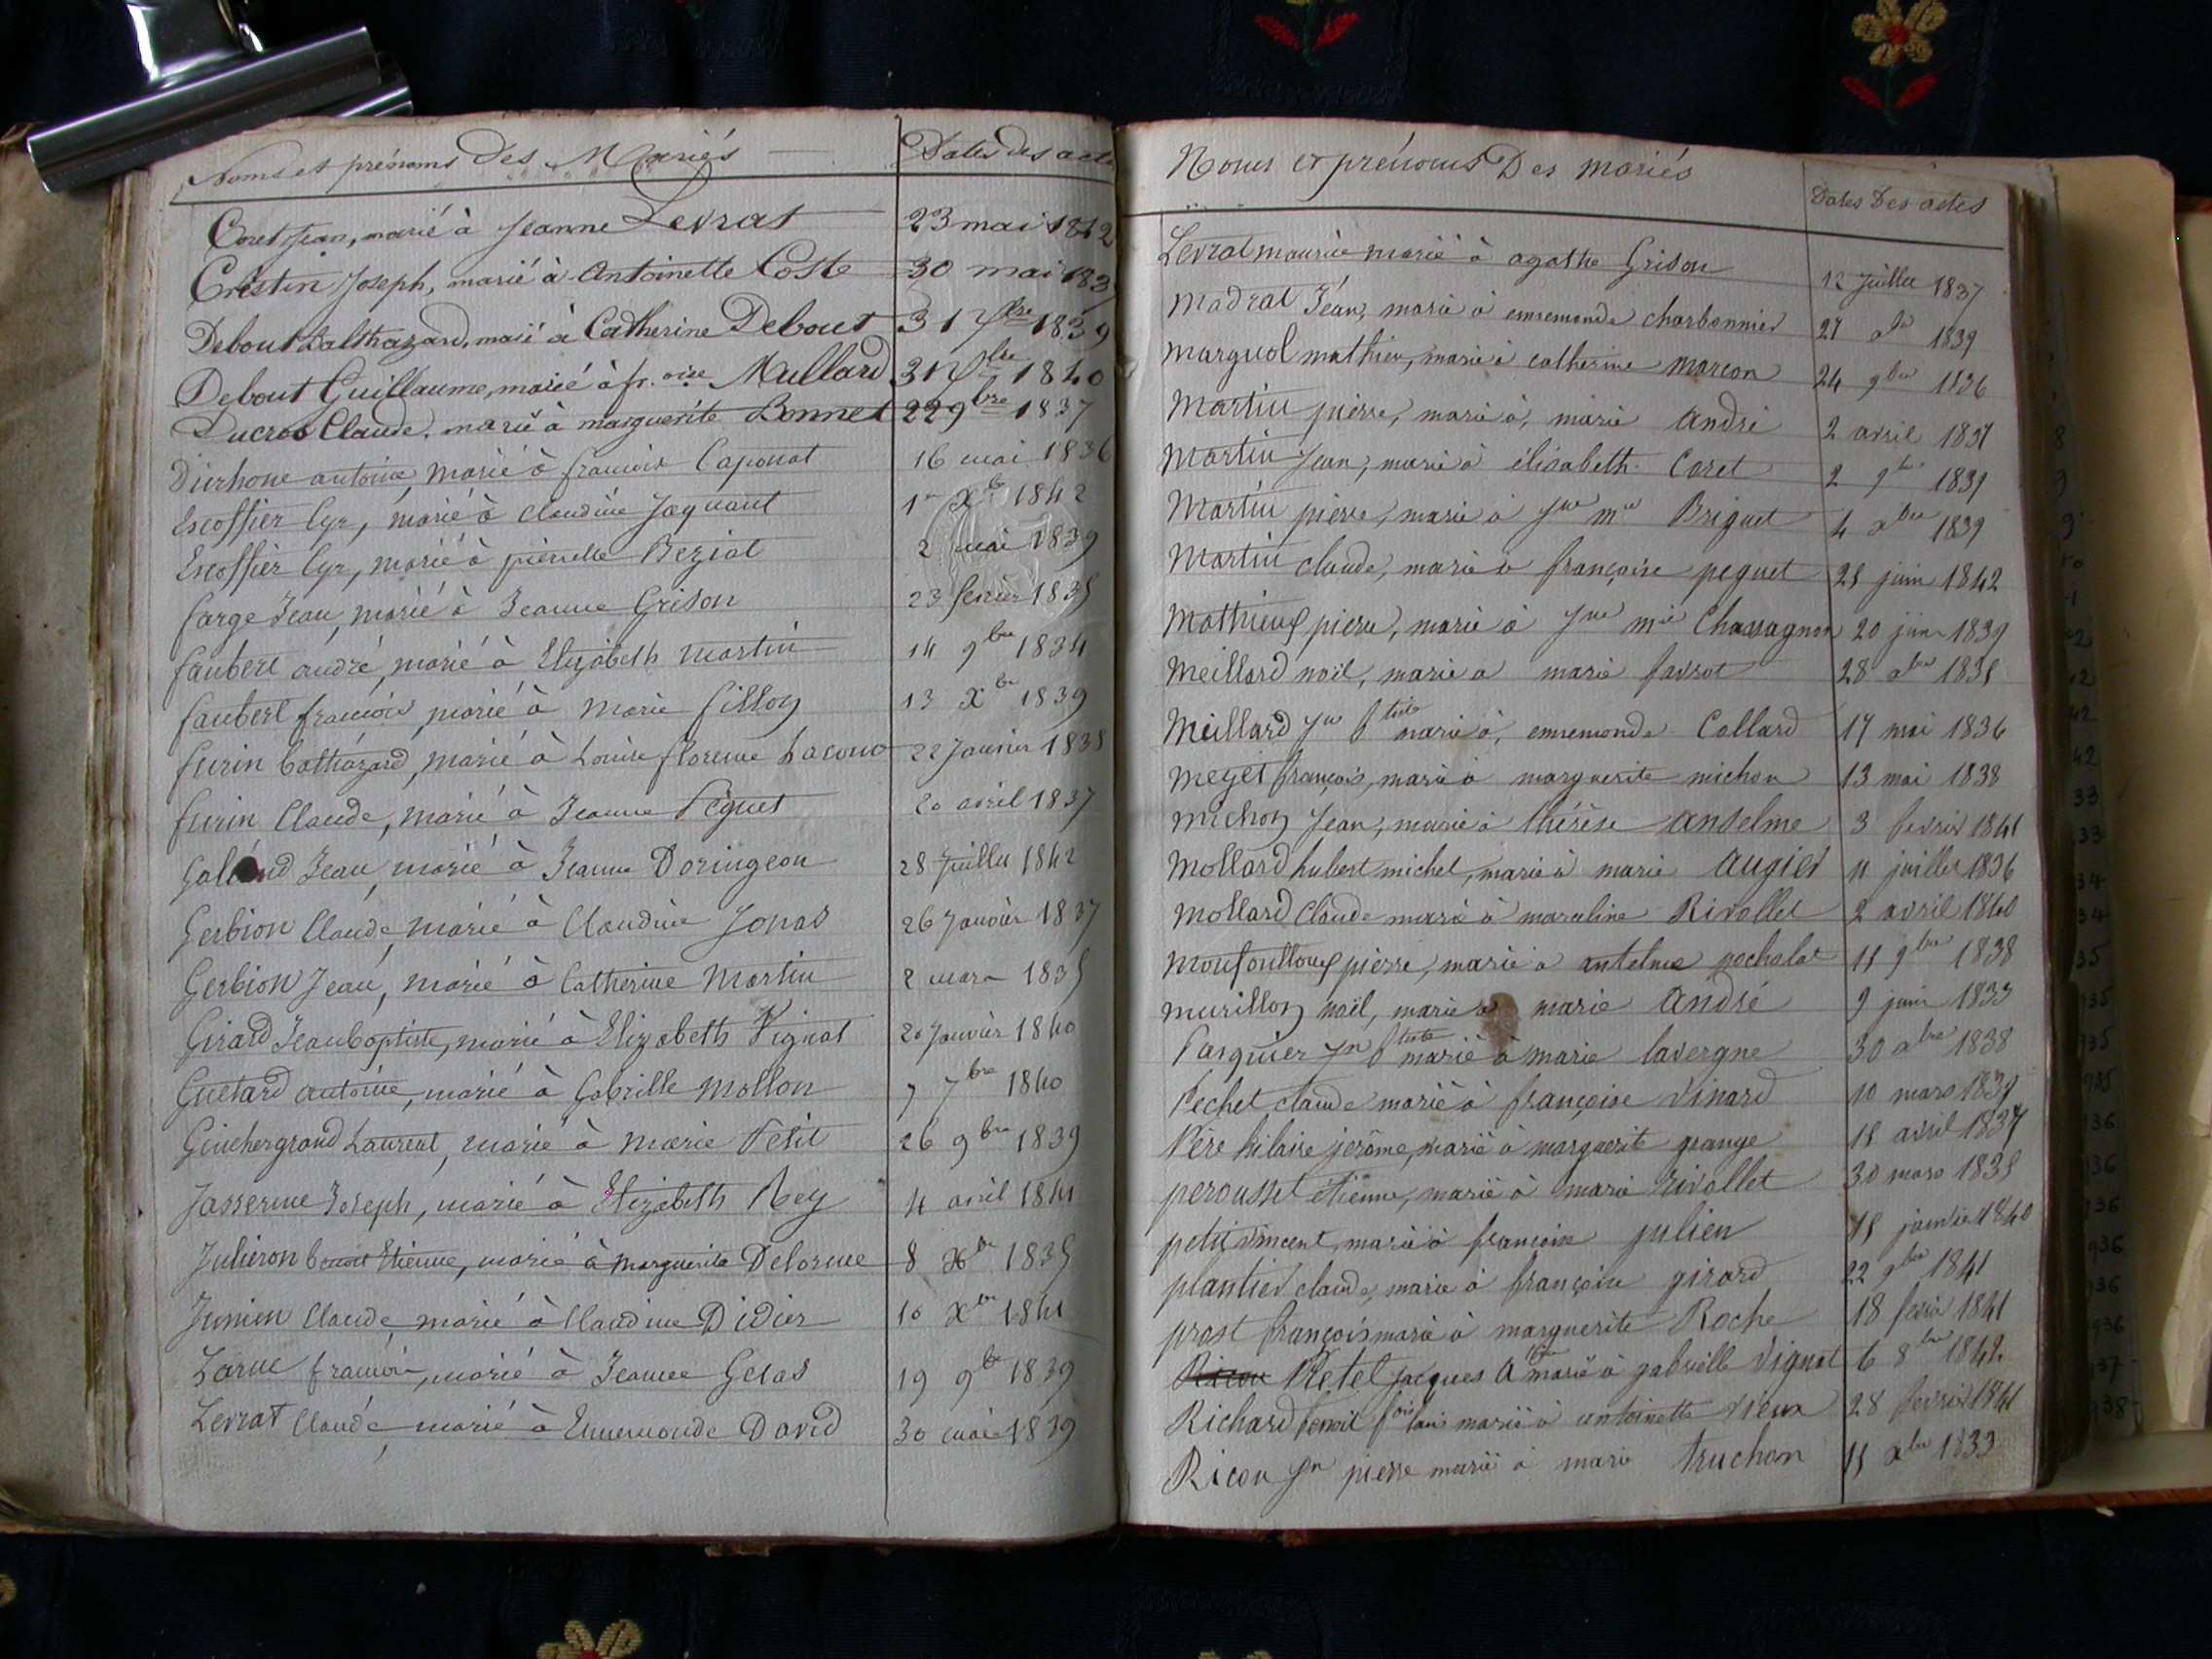 Noms et prénoms Des Mariés
Dates des actes
Coret Jean, marié à Jeanne Levrat 23 mai 1842
Crestin Joseph, marié à Antoinette Coste 30 mai 183
Debout Balthazard, marié à Catherine Debout 31 Xbre 1839
Debout Guillaume, marié à fr.oise Mullard 31 Xbre 1840
Ducros Claude, marié à marguerite Bonnet 22 9bre 1837
Durhone antoine, marié à francoise Caponat 16 mai 1836
Escoffier Cyr, marié à Claudine Jaquant 1er Xbre 1842
Escoffier Cyr, marié à pierrette Beziat 2 mai 1839
farge Jean, marié à Jeanne Grison 23 fevrier 1835
faubert andré, marié à Elizabeth Martin 14 9bre 1834
faubert francois, marié à Marie fillon 13 Xbre 1839
furin baltházard, marié à Louise florence Lacour 22 Janvier 1838
furin Claude, marié à Jeanne Péguet 20 avril 1837
Jean, marié à Jeanne Doringeon 28 Juillet 1842
Gerbion Claude, marié à Claudine Jonas 26 Janvier 1837
Gerbion Jean, marié à Catherine Martin 2 mars 1835
Girard Jean baptiste, marié à Elizabeth Vignat 20 Janvier 1840
Guetard antoine, marié à Gabrille Mollon 7 7bre 1840
Guichergrand Laurent, marié à Marie Petit 26 9bre 1839
Jasserme Joseph, marié à Elizabeth Rey 4 avril 1841
Julieron benoit Etienne, marié à Marguerite Delorme 8 Xbre 1835
Junien Claude, marié à Claudine Didier 10 Xbre 1841
Larue francois, marié à Jeanne Gelas 19 9bre 1839
Levrat Claude, marié à Ennemonde David 30 mai 1839
Noms et prénoms Des mariés
Dates Des actes
Levrat maurice marié à agathe Grison 12 Juillet 1837
Madrat Jéan, marié à ennemonde charbonnier 27 xbre 1839
marguol mathieu, marié à catherine marcon 24 9bre 1836
Martin pierre, marié à, marie andré 2 avril 1837
Martin Jean, marié à élisabeth Coret 2 9bre 1839
Martin pierre, marié à Jne mie Briguet 4 xbre 1839
Martin claude, marié à françoise peguet 25 juin 1842
Mathieux pierre, marié à Jne mie Chavagnon 20 juin 1839
Meillard noël, marié a marie favrot 28 xbre 1835
Meillard Jn Btiste marié à, ennemonde Collard 17 mai 1836
Meyet françois, marié à marguerite michon 13 mai 1838
michon Jean, marié à thérèse anselme 3 fevrier 1841
Mollard hubert michel, marié à marie augier 11 juillet 1836
Mollard Claude marié à marceline Rivollet 2 avril 1840
Monfoulloux pierre, marié à antelme pochalat 15 9bre 1838
murillon noël, marié à marie andré 9 juin 1833
Pasquier Jn Btiste marié à marie lavergne 30 xbre 1838
Pechet claude marié à françoise Vinard 10 mars 1839
Père hilaire jerôme, marié à marguerite grange 15 avril 1837
perousset étienne, marié à marie rivollet 30 mars 1835
petit vincent, marié à francoise julien 15 janvier 1840
plantier claude, marié à françoise girard 22 9bre 1841
prost françois marié à marguerite Roche 18 fevrier 1841
Ricou Pretel Jacques marié à gabrielle Vignat 6 8bre 1842
Richard benoit marié à antoinette vieux 28 fevrier 1841
Ricou Jn pierre marié à marie truchon 15 xbre 1833